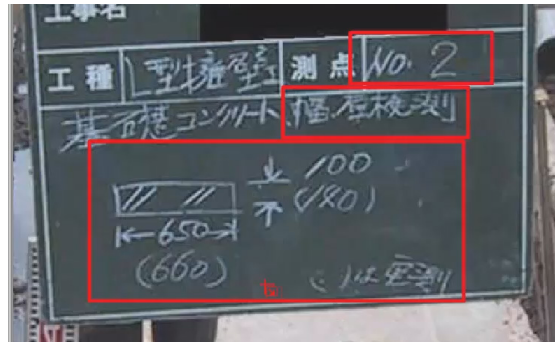 工事名
工種 L型擁壁 測点 NO. 2
基礎コンクリート 幅・厚検測
100
(180)
←650→
(660)
( )は実測